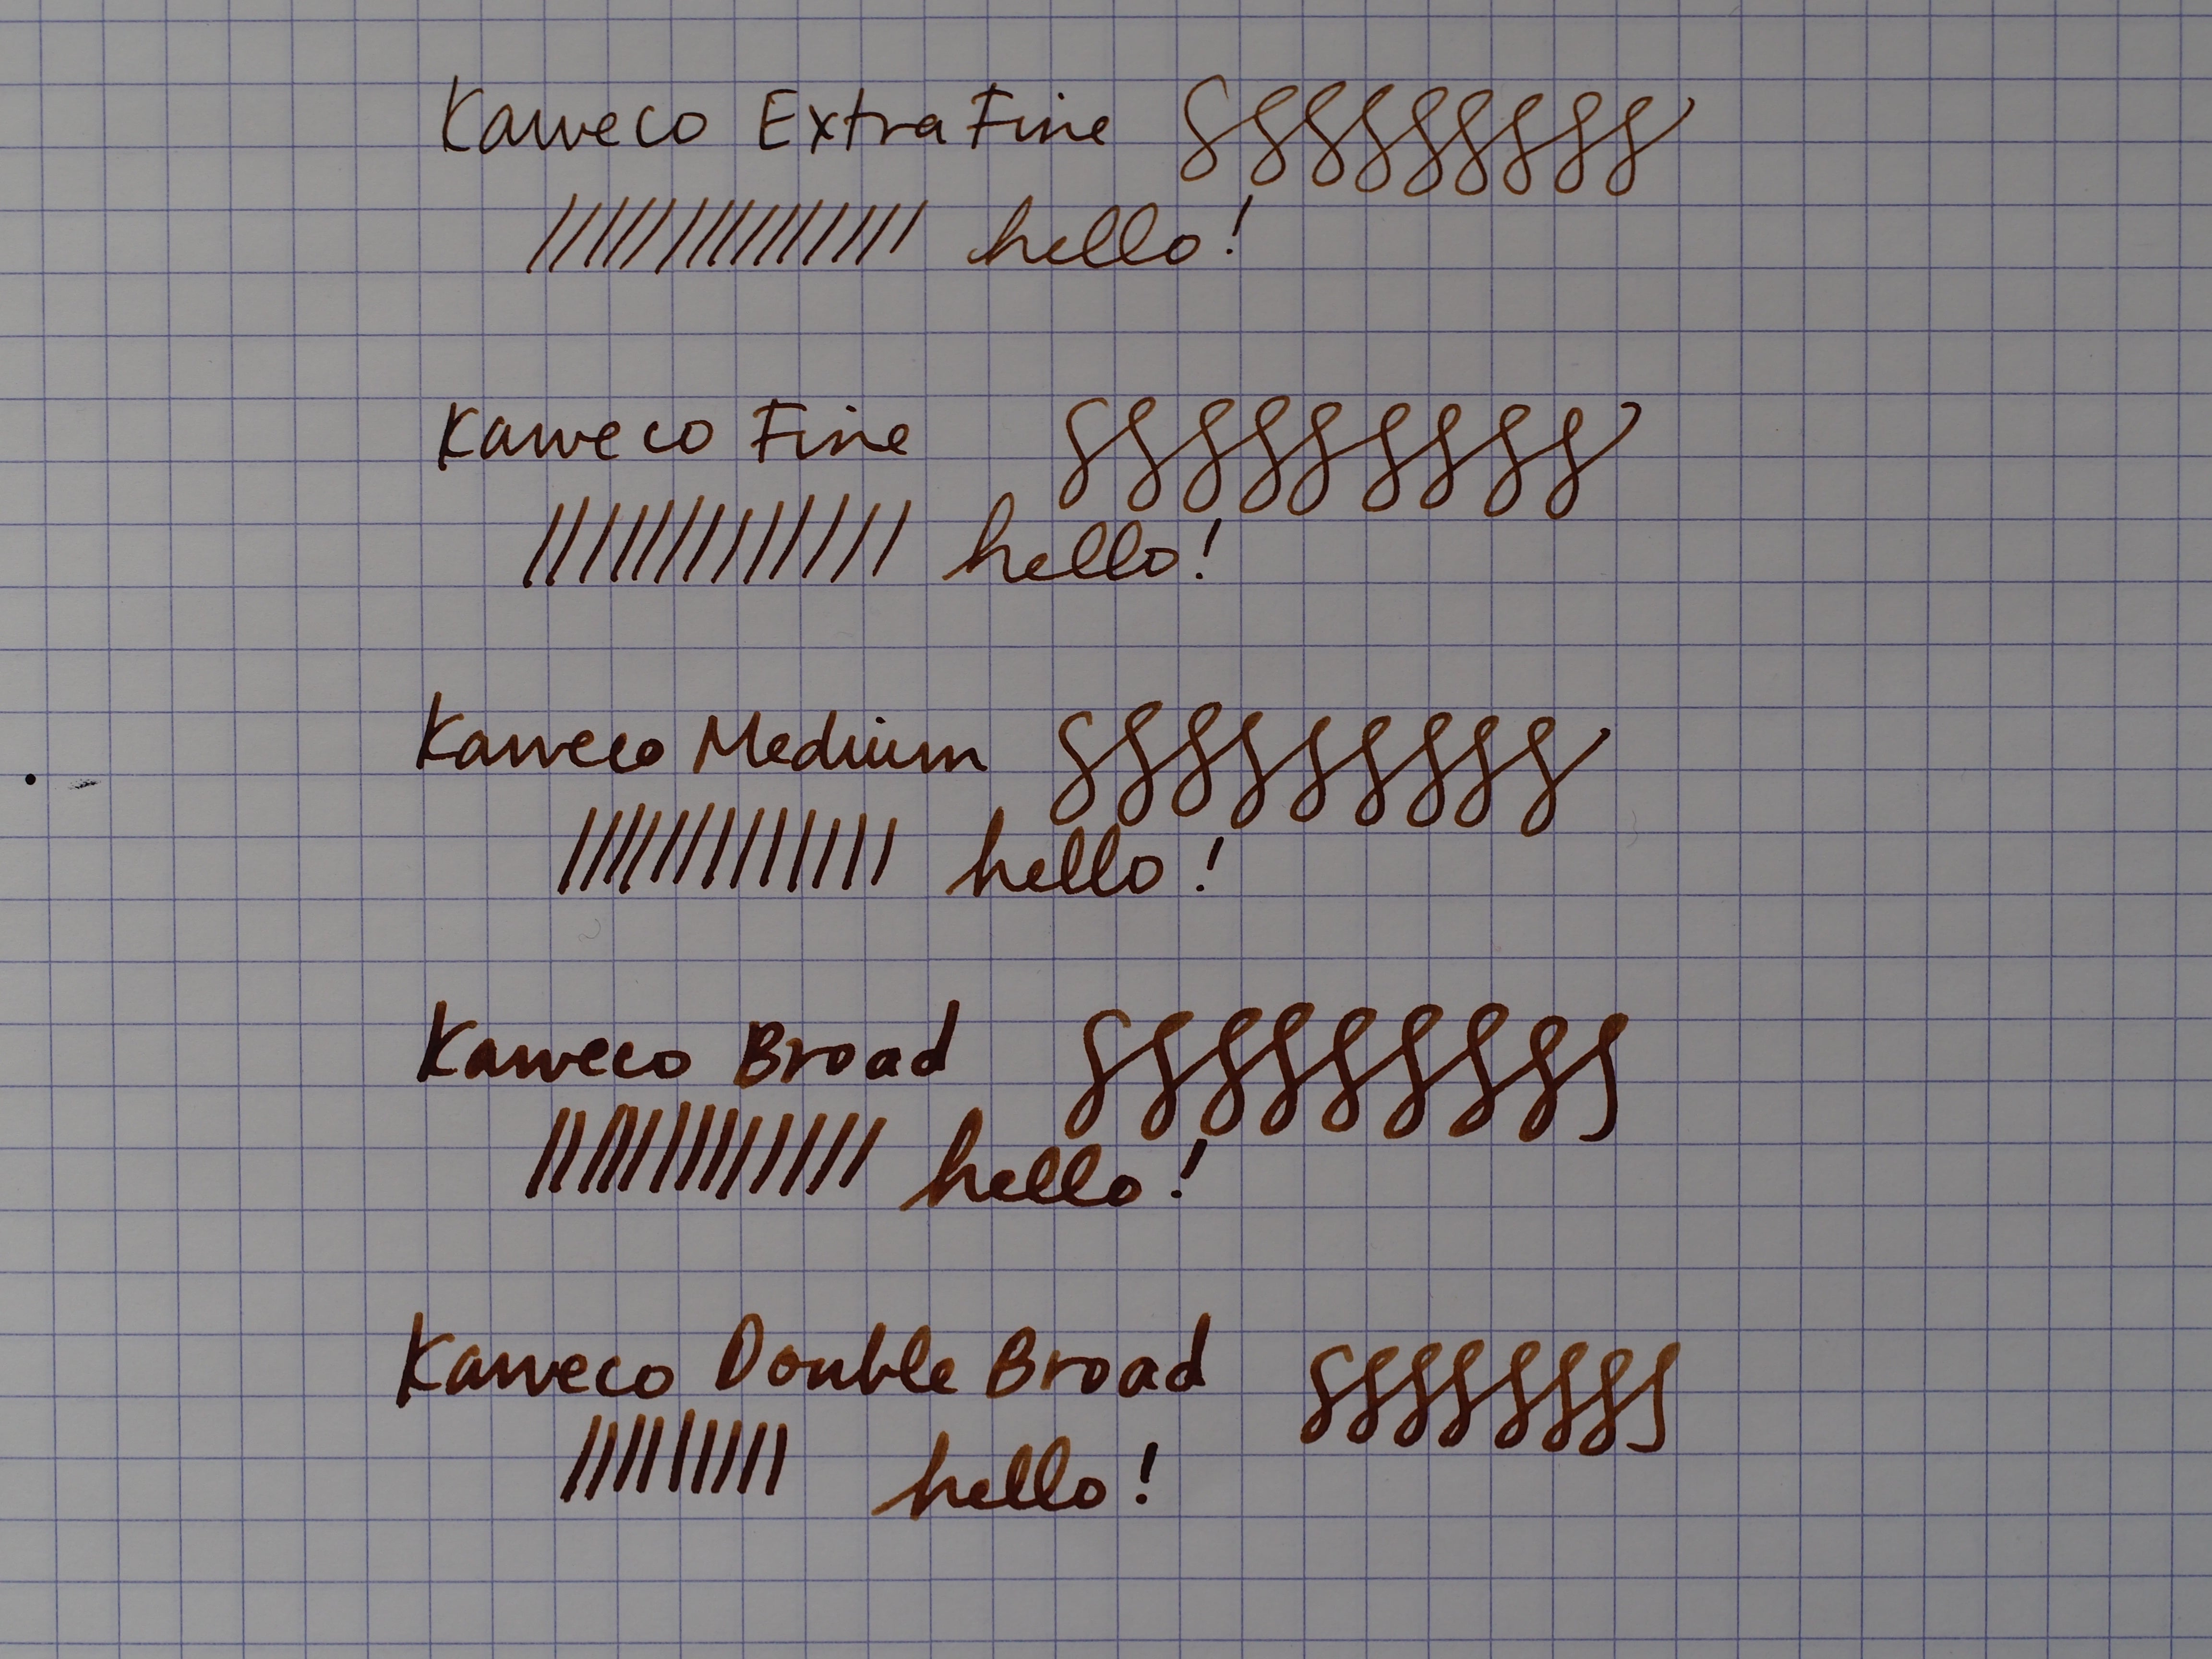 Kaweco Extra Fine
hello!
Kaweco Fine
hello!
Kaweco Medium
hello!
Kaweco Broad
hello!
Kaweco Double Broad
hello!